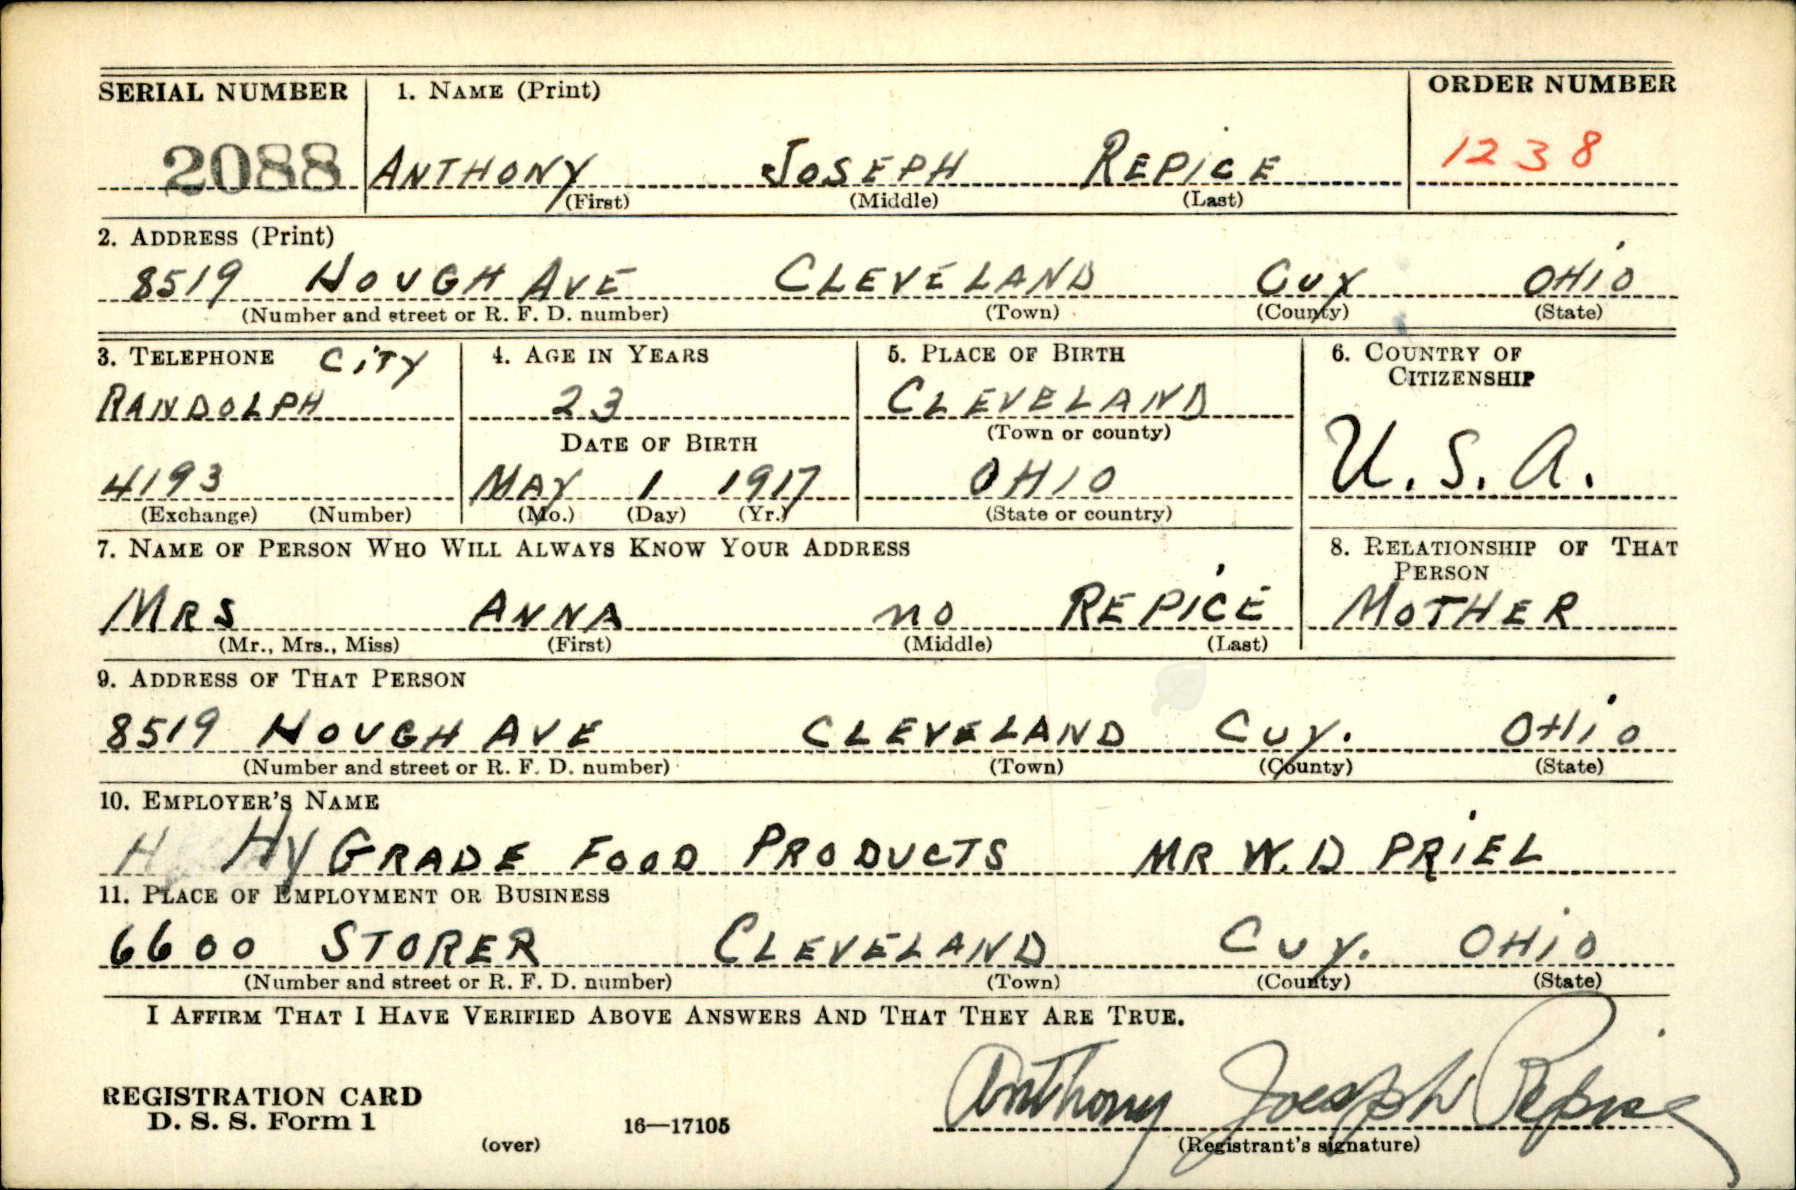 SERIAL NUMBER 1. NAME (Print) ORDER NUMBER
2088 ANTHONY JOSEPH REPICE 1238
(First) (Middle) (Last)
2. ADDRESS (Print)
8519 HOUGH AVE CLEVELAND CUY OHIO
(Number and street or R. F. D. number) (Town) (County) (State)
3. TELEPHONE CITY 4. AGE IN YEARS 5. PLACE OF BIRTH 6. COUNTRY OF CITIZENSHIP
RANDOLPH 23 CLEVELAND
DATE OF BIRTH (Town or county)
4193 MAY 1 1917 OHIO U.S.A.
(Exchange) (Number) (Mo.) (Day) (Yr.) (State or country)
7. NAME OF PERSON WHO WILL ALWAYS KNOW YOUR ADDRESS 8. RELATIONSHIP OF THAT PERSON
MRS ANNA no REPICE MOTHER
(Mr., Mrs., Miss) (First) (Middle) (Last)
9. ADDRESS OF THAT PERSON
8519 HOUGH AVE CLEVELAND CUY. OHIO
(Number and street or R. F. D. number) (Town) (County) (State)
10. EMPLOYER'S NAME
HY GRADE FOOD PRODUCTS MR W.D PRIEL
11. PLACE OF EMPLOYMENT OR BUSINESS
6600 STORER CLEVELAND CUY. OHIO
(Number and street or R. F. D. number) (Town) (County) (State)
I AFFIRM THAT I HAVE VERIFIED ABOVE ANSWERS AND THAT THEY ARE TRUE.
Anthony Joseph Repice
REGISTRATION CARD
D. S. S. Form 1 16—17105
(over) (Registrant's signature)